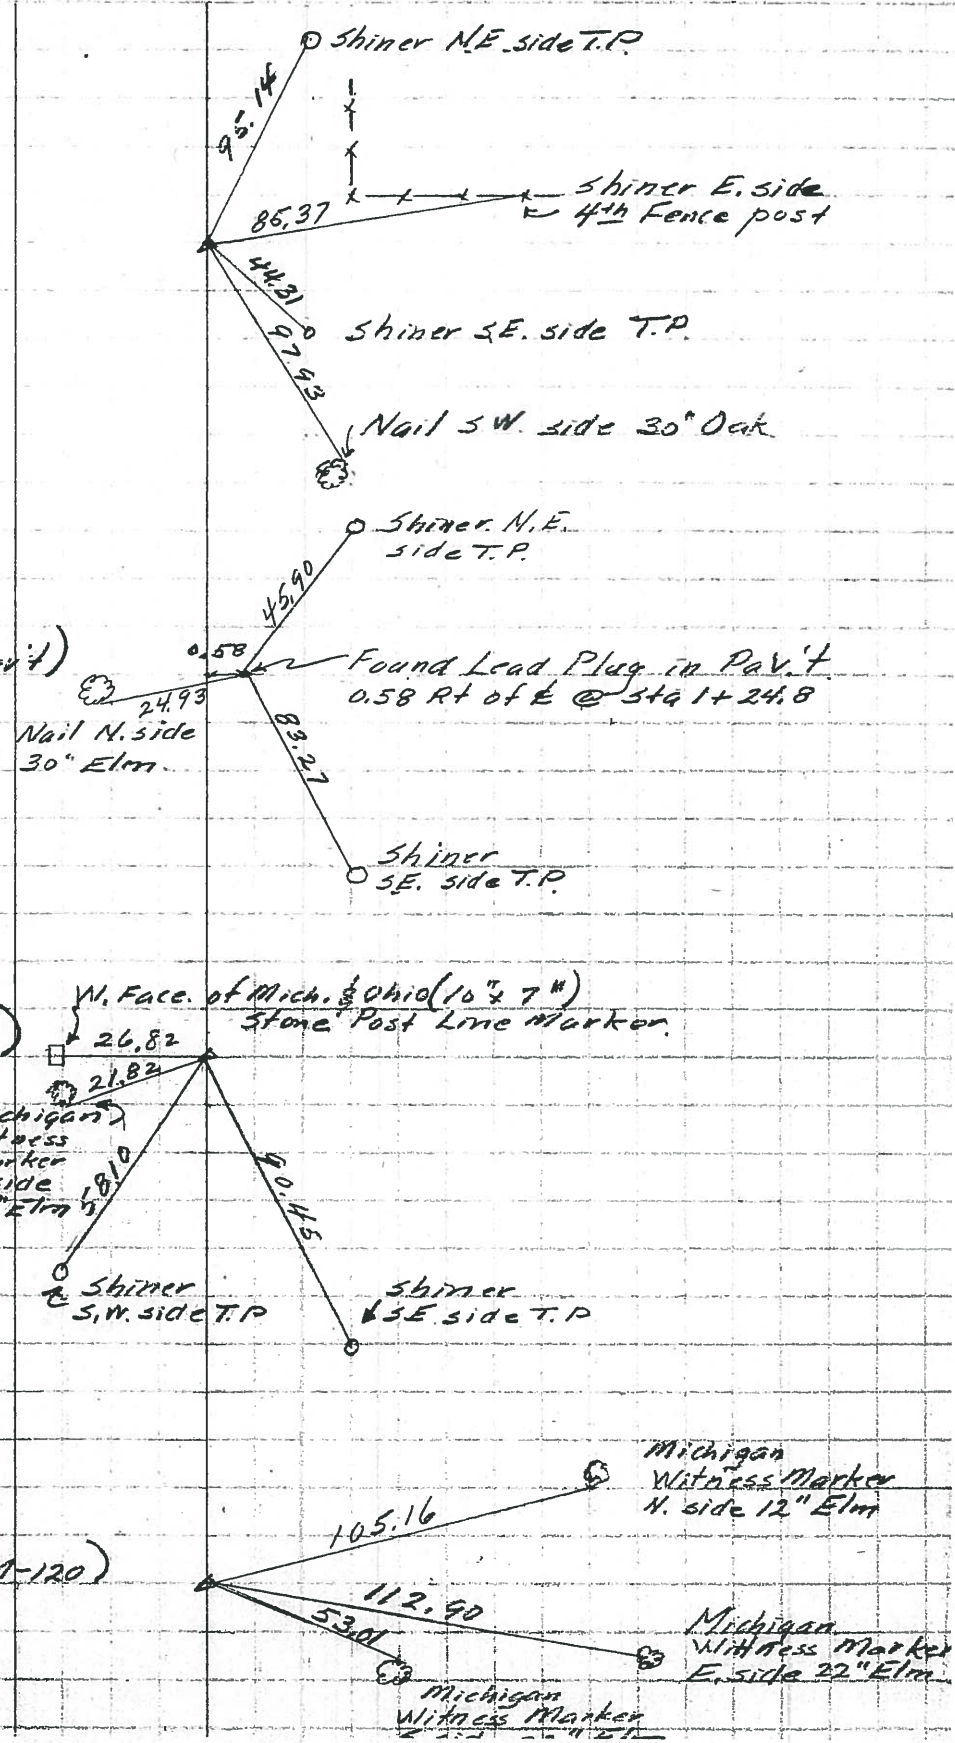 Shiner N.E. side T.P.
95.14
Shiner E. side
4th Fence post
85.37
44.31
Shiner S.E. side T.P.
97.93
Nail S.W. side 30" Oak
Shiner N.E.
side T.P.
45.90
0.58
Found Lead Plug in Pav't.
0.58 Rt of ℄ @ Sta 1+24.8
24.93
Nail N. side
30" Elm
83.27
Shiner
S.E. side T.P.
W. Face of Mich. & Ohio (10" x 7")
Stone Post Line Marker
26.82
21.82
side
Elm
58.10
90.45
Shiner
S.W. side T.P
Shiner
S.E. side T.P
Michigan
Witness Marker
N. side 12" Elm
105.16
-120)
112.90
53.01
Michigan
Wittness Marker
E. side 22" Elm
Michigan
Witness Marker